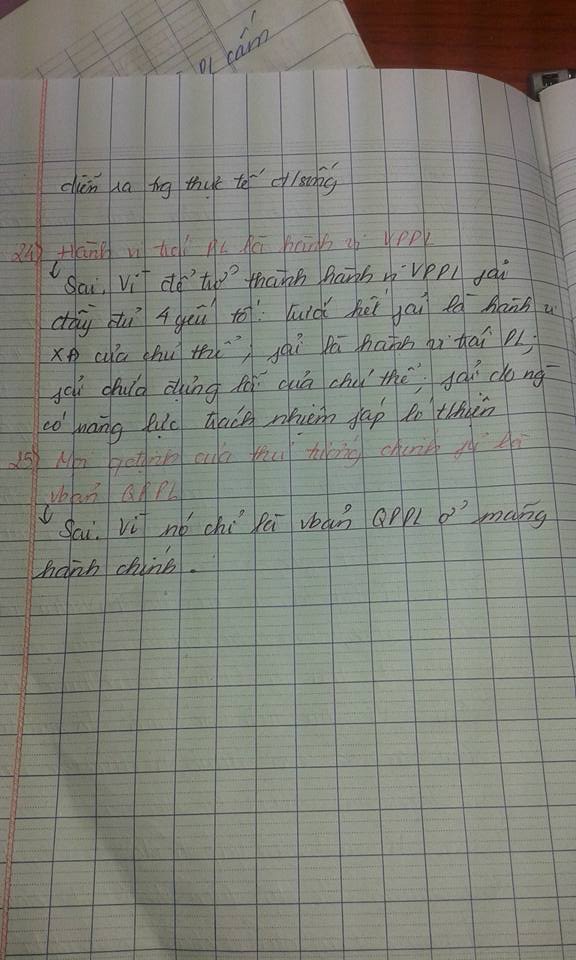 PL cấm
diễn ra tg thực tế đ/sống
24) Hành vi trái PL là hành vi VPPL
↳ Sai. Vì để trở thành hành vi VPPL fải
đầy đủ 4 yếu tố: trước hết fải là hành vi
XĐ của chủ thể; fải là hành vi trái PL;
fải chứa đựng lỗi của chủ thể; fải do ng
có năng lực trách nhiệm fáp lí t/hiện
25) Mọi qđịnh của thủ tướng chính fủ là
vbản QPPL
↳ Sai. Vì nó chỉ là vbản QPPL ở mảng
hành chính.